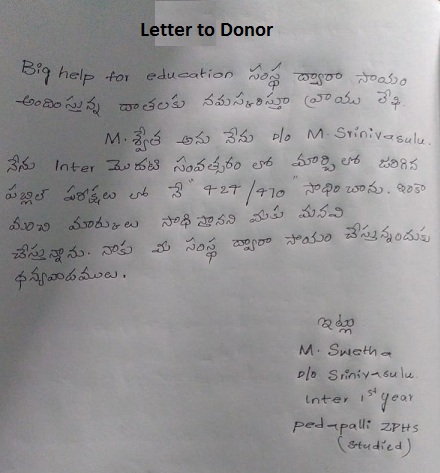 Letter to Donor
Big help for education సంస్థ ద్వారా సాయం
అందిస్తున్న దాతలకు నమస్కరిస్తూ వ్రాయు లేఖ.
M. శ్వేత అను నేను D/o M. Srinivasulu.
నేను Inter మొదటి సంవత్సరం లో మార్చి లో జరిగిన
పబ్లిక్ పరీక్షలు లో నే "427/470" సాధించాను. ఇంకా
మంచి మార్కులు సాధిస్తానని మీకు మనవి
చేస్తున్నాను. నాకు మీ సంస్థ ద్వారా సాయం చేస్తున్నందుకు
ధన్యవాదములు.
ఇట్లు
M. Swetha
D/o Srinivasulu.
Inter 1st year
pedapalli ZPHS
(studied)